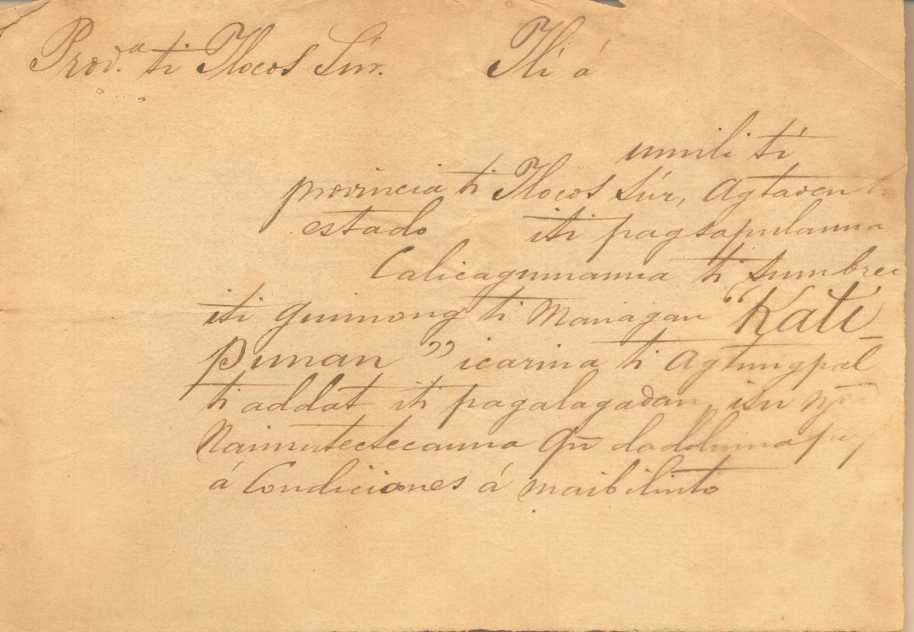 Prov.ª ti Ilocos Súr. Ili á
umili ti
provincia ti Ilocos Súr, Agtaoen
estado iti pagsapulanna
Calicagumanna ti sumbrec
iti guimong ti Managan "Kati-
punan" icarina ti Agtungpal
ti addat iti pagalagadan, isu
Naimutectecanna qñ dadduma
á Condiciones á maibilinto